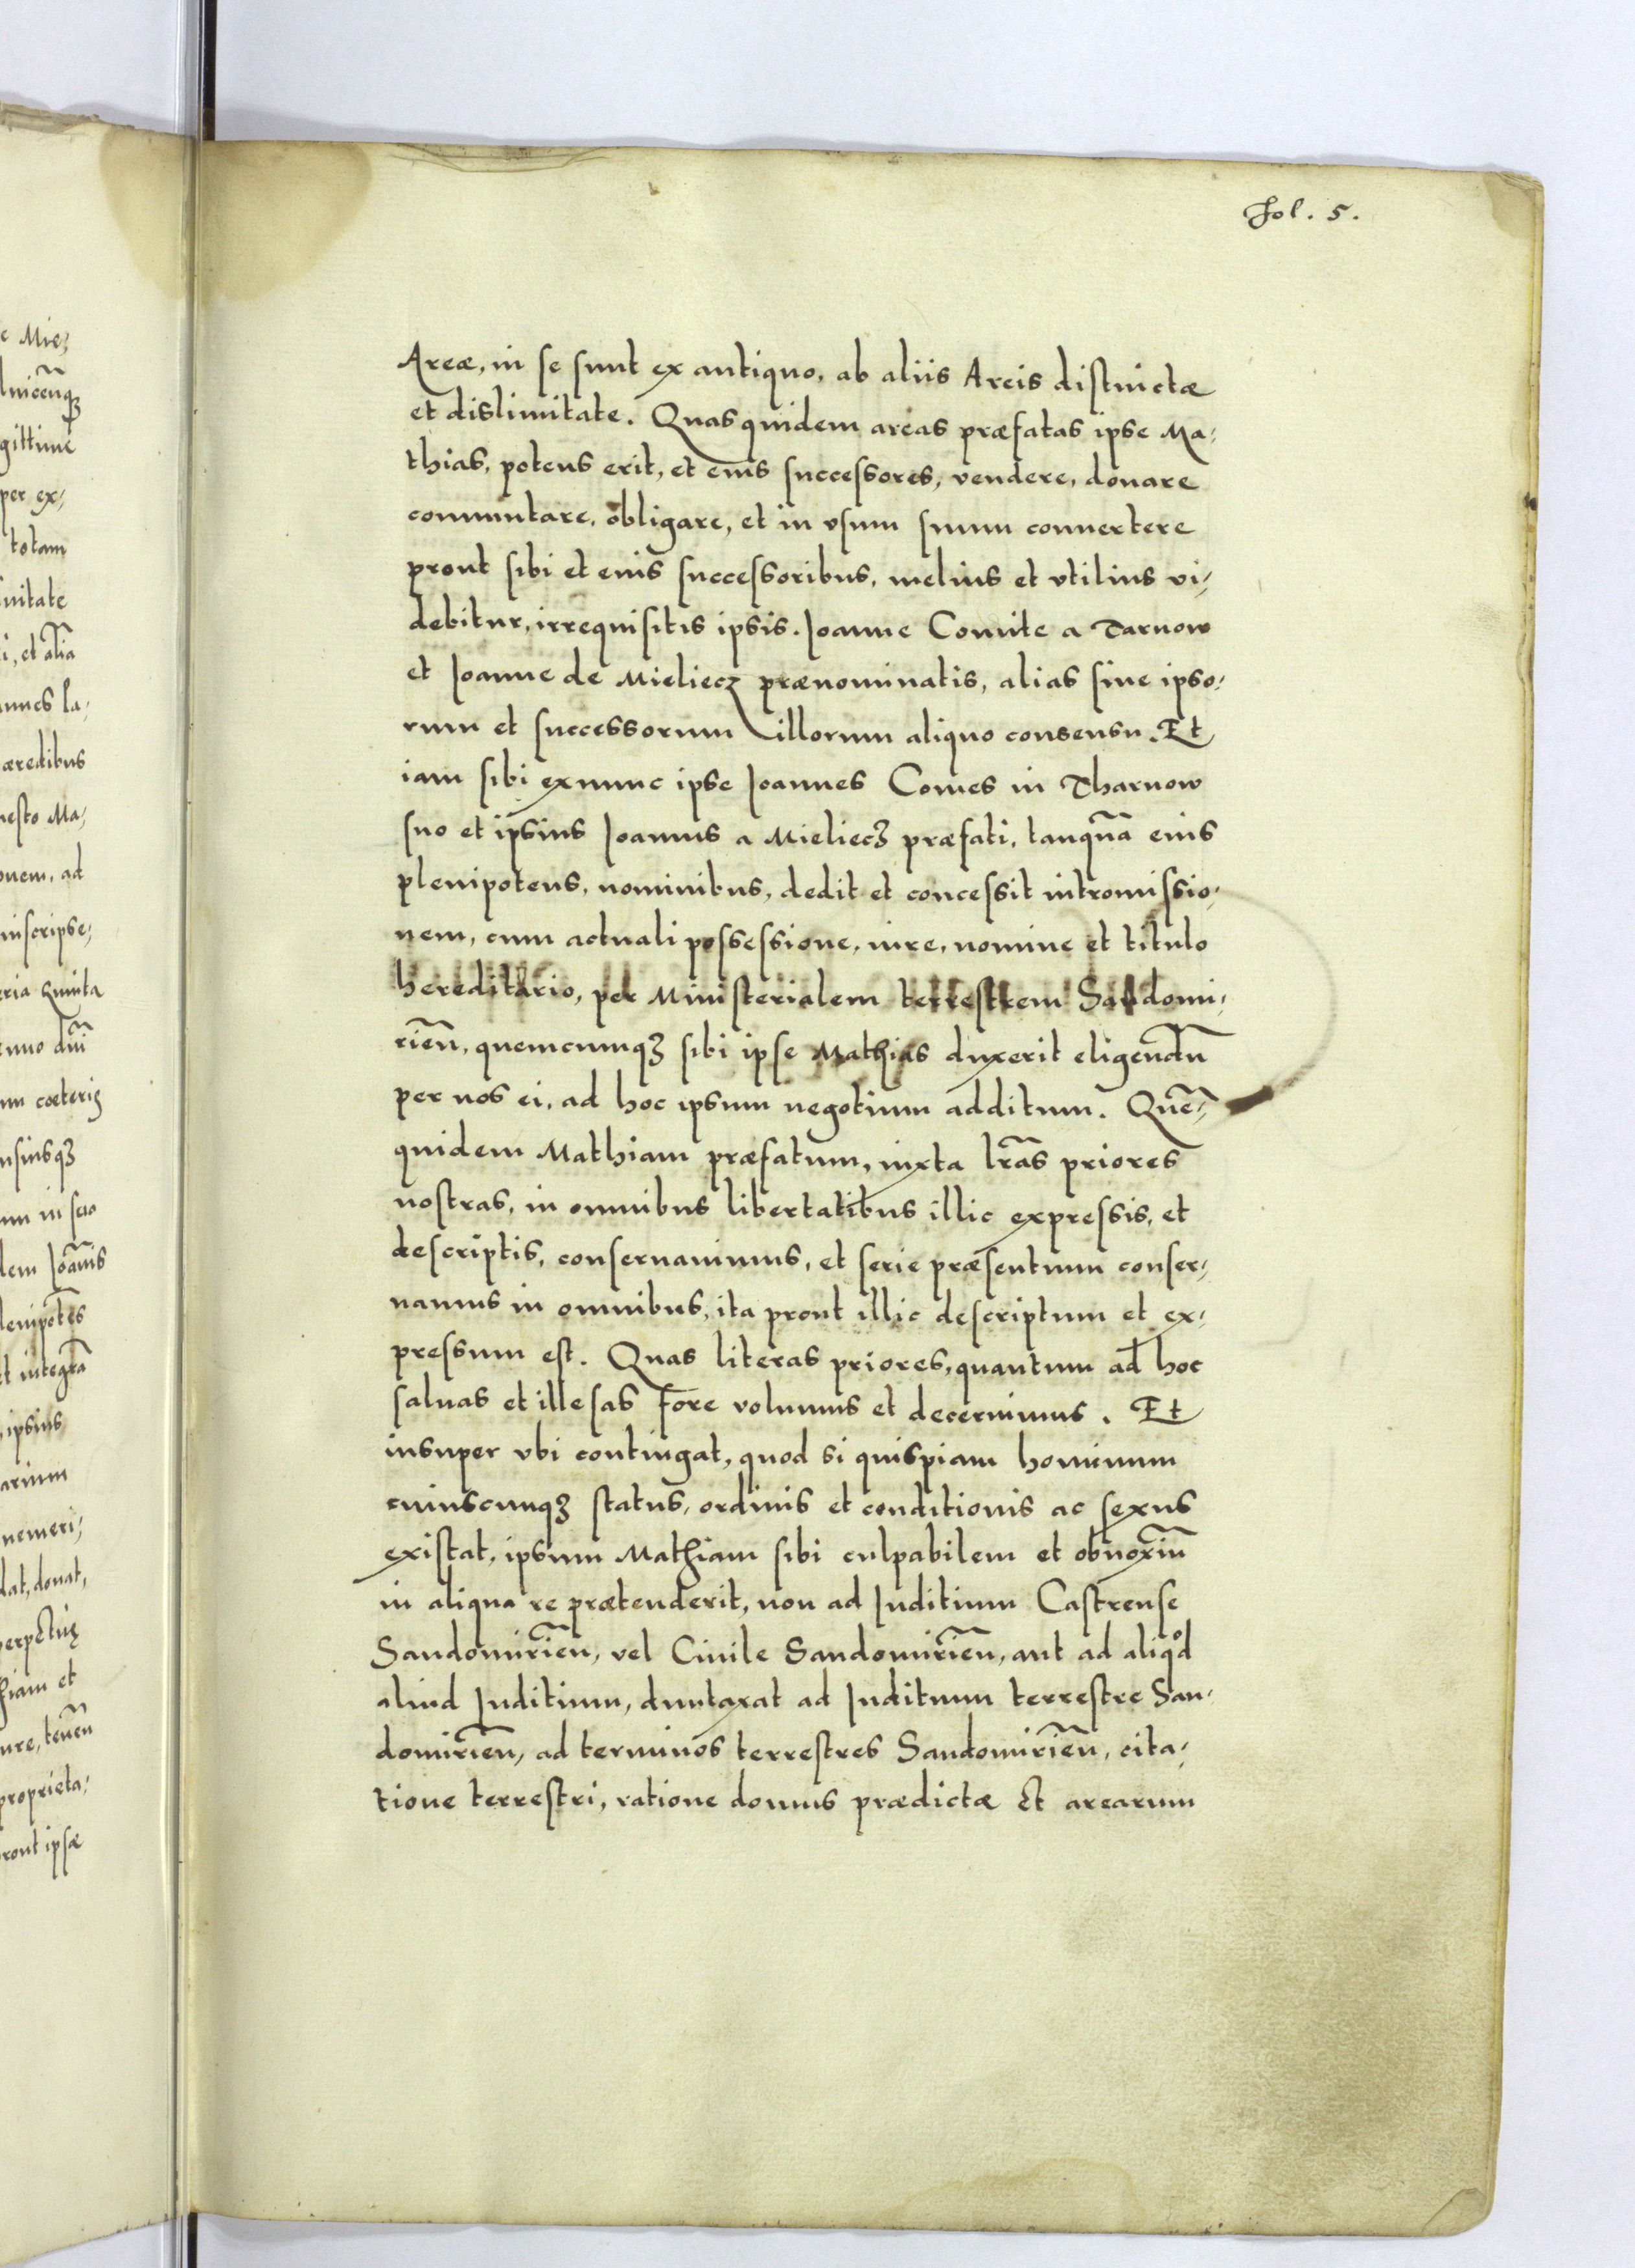 Fol. 5.
Areæ, in se sunt ex antiquo, ab aliis Areis distinctæ
et dislimitate. Quas quidem areas præfatas ipse Ma,
thias, potens erit, et eius successores, vendere, donare
commutare, obligare, et in vsum suum conuertere
prout sibi et eius successoribus, melius et vtilius vi,
debitur, irrequisitis ipsis. Joanne Comite a Tarnow
et Joanne de Mieliecz prænominatis, alias sine ipso,
rum et successorum illorum aliquo consensu. Et
iam sibi exnunc ipse Joannes Comes in Tharnow
suo et ipsius Joannis a Mieliecz præfati, tanquā eius
plenipotens, nominibus, dedit et concessit intromissio,
nem, cum actuali possessione, iure, nomine et titulo
hereditario, per Ministerialem terrestrem Sandomi,
rien̄, quemcunqꝫ sibi ipse Mathias duxerit eligendū
per nos ei, ad hoc ipsum negotium additum. Quē,
quidem Mathiam præfatum, iuxta lr̄as priores
nostras, in omnibus libertatibus illic expressis, et
descriptis, conseruauimus, et serie præsentium conser,
uamus in omnibus, ita prout illic descriptum et ex,
pressum est. Quas literas priores, quantum ad hoc
saluas et illesas fore volumus et decernimus. Et
insuper vbi contingat, quod si quispiam hominum
cuiuscunqꝫ status, ordinis et conditionis ac sexus
existat, ipsum Mathiam sibi culpabilem et obnoxiū
in aliqua re prætenderit, non ad Juditium Castrense
Sandomirien̄, vel Ciuile Sandomirien̄, aut ad aliqͦd
aliud Juditium, duntaxat ad Juditium terrestre San,
domirien̄, ad terminos terrestres Sandomirien̄, cita,
tione terrestri, ratione domus prædictæ Et arearum